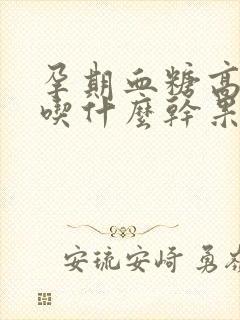 孕期血糖高
喫什麼幹果
安琉安崎 勇